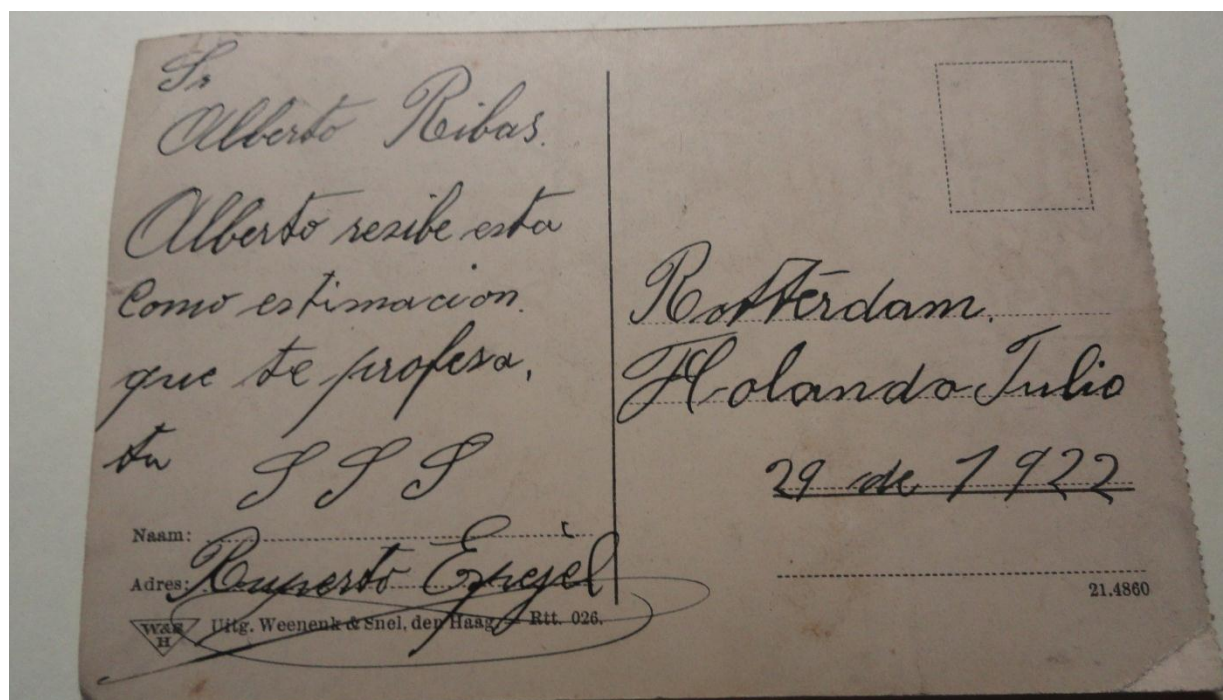 Sr
Alberto Ribas.
Alberto resibe esta
como estimacion
que te profesa,
tu S S S
Naam:
Ruperto Espejel
Adres:
W&S
H
Uitg. Weenenk & Snel, den Haag. — Rtt. 026.
Rotterdam.
Holanda Julio
29 de 1922
21.4860